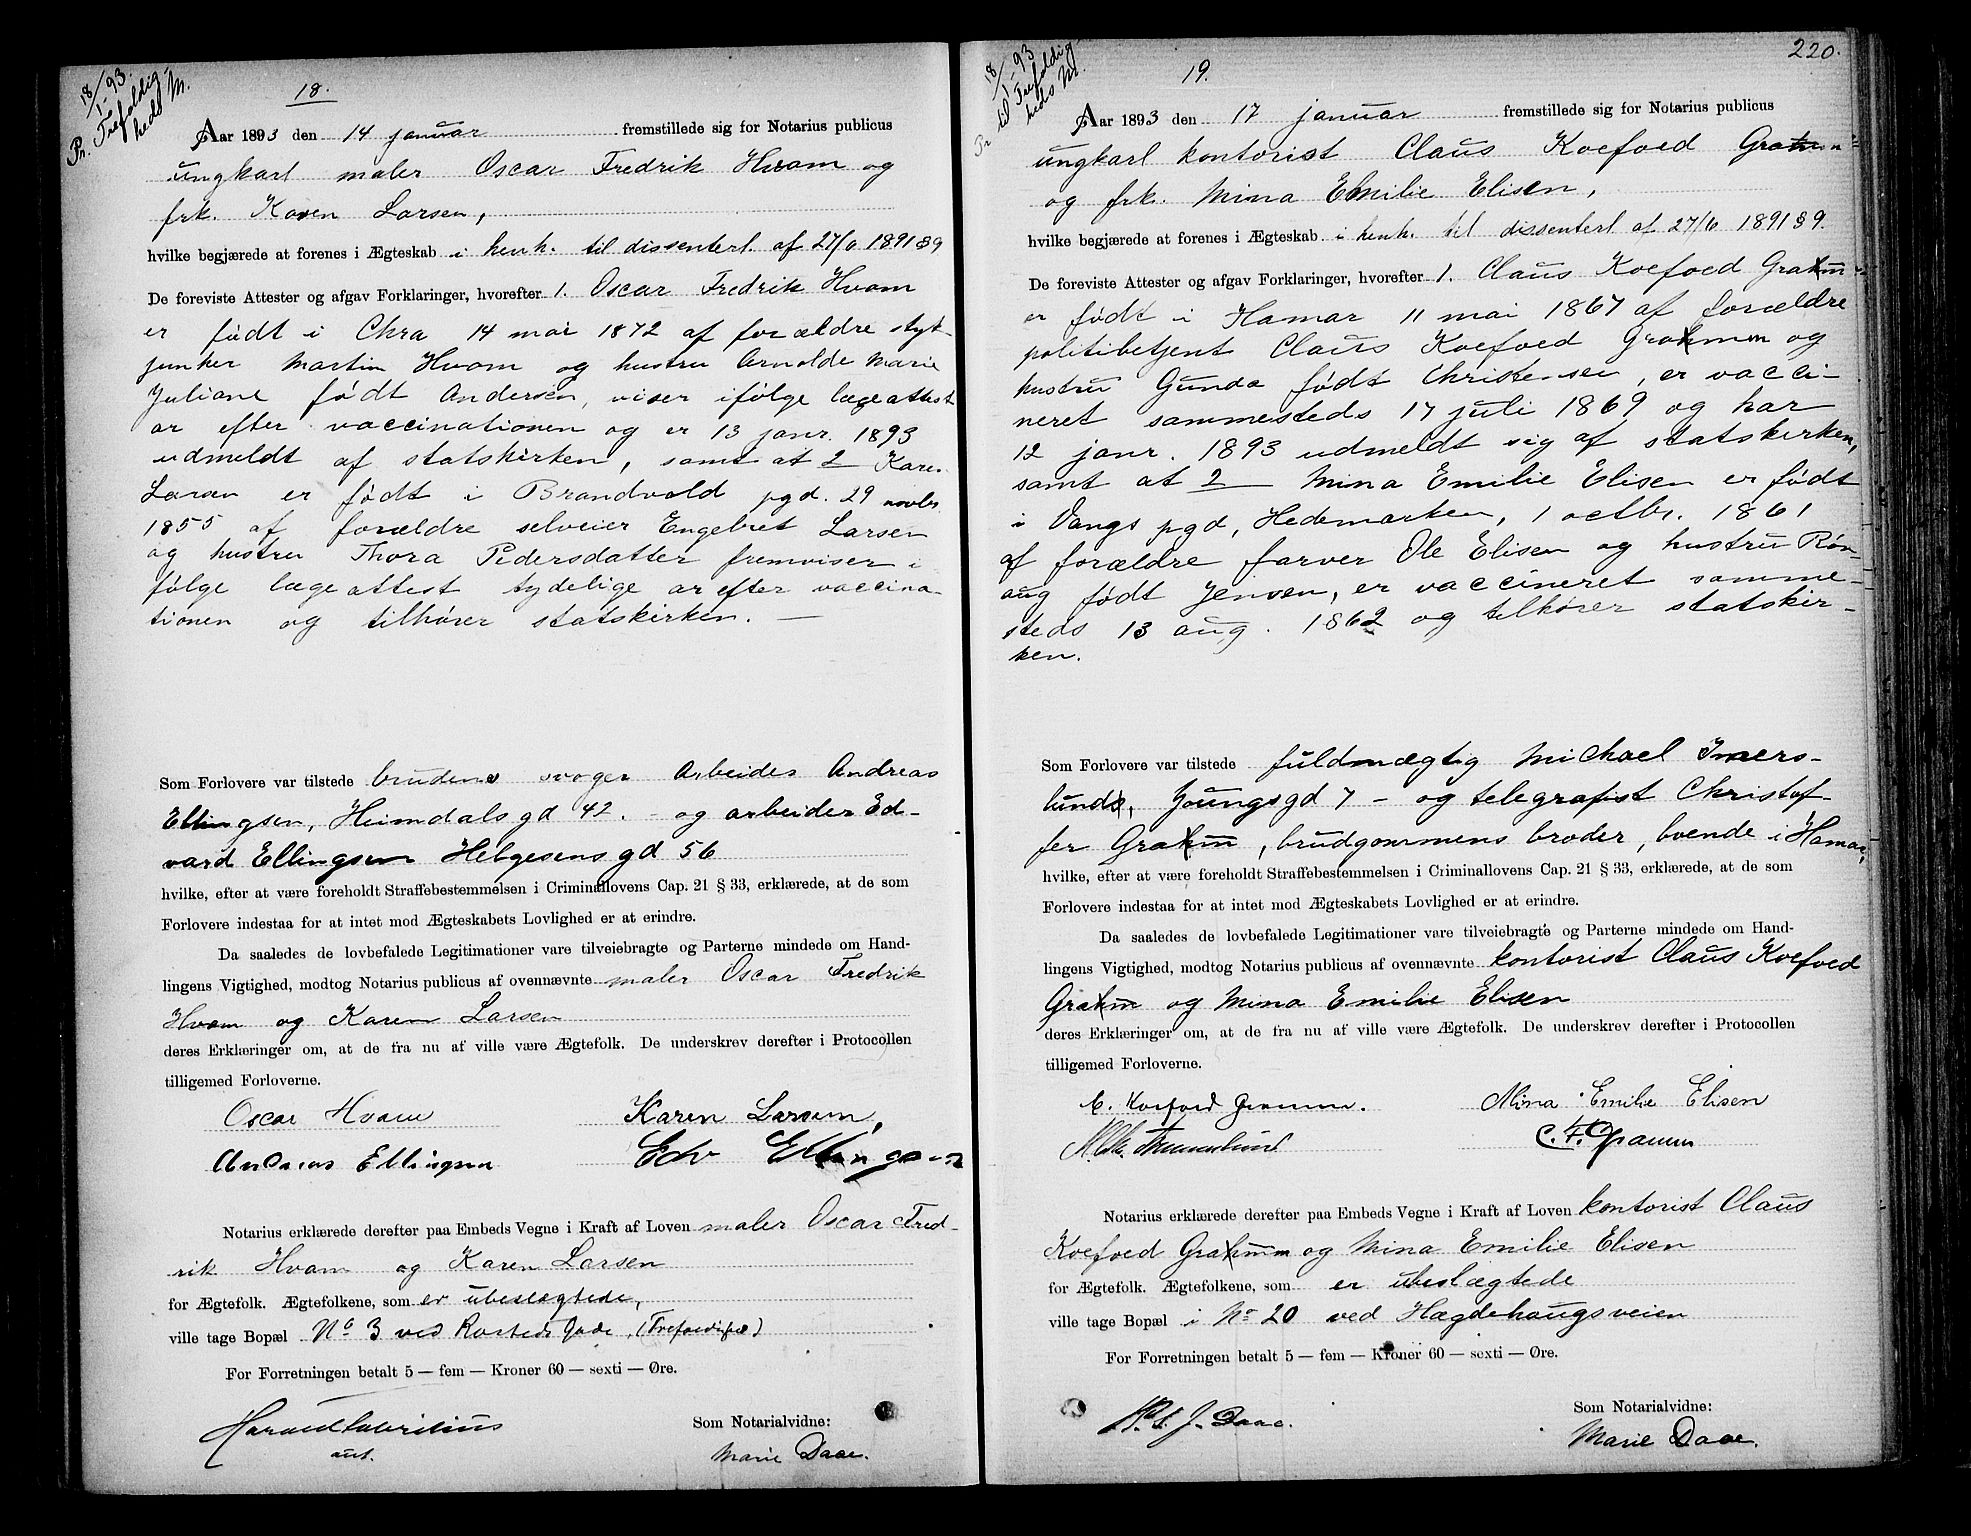 18/1-93.
Pr. Trefoldig-
heds M.
18.
Aar 1893 den 14 januar fremstillede sig for Notarius publicus
ungkarl maler Oscar Fredrik Hvam og
frk. Karen Larsen,
hvilke begjærede at forenes i Ægteskab i henh. til dissenterl. af 27/6 1891 § 9
De foreviste Attester og afgav Forklaringer, hvorefter 1. Oscar Fredrik Hvam
er født i Chra 14 mai 1872 af forældre styk-
junker Martin Hvam og hustru Arnolde Marie
Juliane født Andersen, viser ifølge lægeattest
ar efter vaccinationen og er 13 janr. 1893
udmeldt af statskirken, samt at 2 Karen
Larsen er født i Brandvold pgd. 29 novbr.
1855 af forældre selveier Engebret Larsen
og hustru Thora Pedersdatter fremviser i
følge lægeattest tydelige ar efter vaccina-
tionen og tilhører statskirken. —
Som Forlovere var tilstede brudens svoger Arbeider Andreas
Ellingsen, Heimdals gd 42. - og arbeider Ed-
vard Ellingsen Helgesens gd 56
hvilke, efter at være foreholdt Straffebestemmelsen i Criminallovens Cap. 21 § 33, erklærede, at de som
Forlovere indestaa for at intet mod Ægteskabets Lovlighed er at erindre.
Da saaledes de lovbefalede Legitimationer vare tilveiebragte og Parterne mindede om Hand-
lingens Vigtighed, modtog Notarius publicus af ovennævnte maler Oscar Fredrik
Hvam og Karen Larsen
deres Erklæringer om, at de fra nu af ville være Ægtefolk. De underskrev derefter i Protocollen
tilligemed Forloverne.
Oscar Hvam Karen Larsen,
Andreas Ellingsen Edv Ellingsen
Notarius erklærede derefter paa Embeds Vegne i Kraft af Loven maler Oscar Fred-
rik Hvam og Karen Larsen
for Ægtefolk. Ægtefolkene, som er ubeslægtede,
ville tage Bopæl No 3 ved Rosteds Gade, (Trefoldighed)
For Forretningen betalt 5 — fem — Kroner 60 — sexti — Øre.
aut.
Som Notarialvidne:
Marie Daae.
220.
18/1-93
Pr til Trefoldig-
heds M.
19.
Aar 1893 den 17 januar fremstillede sig for Notarius publicus
ungkarl kontorist Claus Koefoed Gramm
og frk. Mina Emilie Elisen,
hvilke begjærede at forenes i Ægteskab i henh. til dissenterl af 27/6 1891 § 9.
De foreviste Attester og afgav Forklaringer, hvorefter 1. Claus Koefoed Gramm
er født i Hamar 11 mai 1867 af forældre
politibetjent Claus Koefoed Gramm og
hustru Gunda født Christensen, er vacci-
neret sammesteds 17 juli 1869 og har
12 janr. 1893 udmeldt sig af statskirken,
samt at 2 Mina Emilie Elisen er født
i Vangs pgd, Hedemarken, 1 octbr. 1861
af forældre farver Ole Elisen og hustru Røn-
aug født Jensen, er vaccineret samme-
steds 13 aug. 1862 og tilhører statskir-
ken.
Som Forlovere var tilstede fuldmægtig Michael Imers-
lund, Youngsgd 7 - og telegrafist Christof-
fer Gramm, brudgommens broder, boende i Hamar,
hvilke, efter at være foreholdt Straffebestemmelsen i Criminallovens Cap. 21 § 33, erklærede, at de som
Forlovere indestaa for at intet mod Ægteskabets Lovlighed er at erindre.
Da saaledes de lovbefalede Legitimationer vare tilveiebragte og Parterne mindede om Hand-
lingens Vigtighed, modtog Notarius publicus af ovennævnte kontorist Claus Koefoed
Gramm og Mina Emilie Elisen
deres Erklæringer om, at de fra nu af ville være Ægtefolk. De underskrev derefter i Protocollen
tilligemed Forloverne.
C. Koefoed Gramm. Mina Emilie Elisen
C. F. Gramm
Notarius erklærede derefter paa Embeds Vegne i Kraft af Loven kontorist Claus
Koefoed Gramm og Mina Emilie Elisen
for Ægtefolk. Ægtefolkene, som er ubeslægtede
ville tage Bopæl i No 20 ved Hægdehaugsveien
For Forretningen betalt 5 — fem — Kroner 60 — sexti — Øre.
J. Daae.
Som Notarialvidne:
Marie Daae.